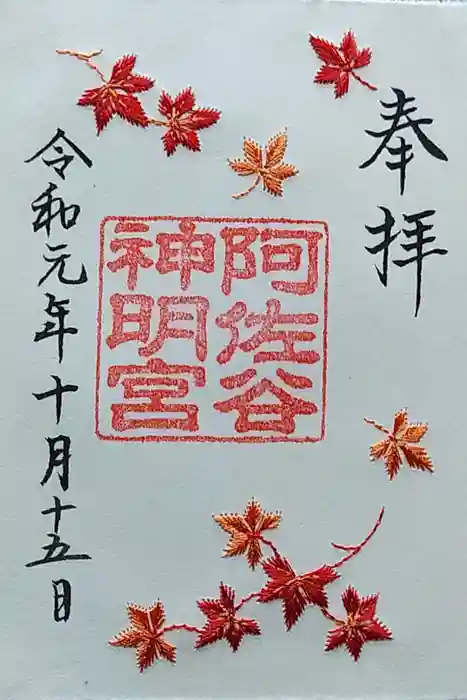 奉拝
阿佐谷
神明宮
令和元年十月十五日